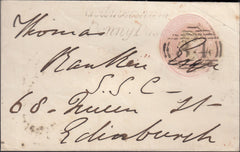 Thomas
Rankin Esqr
S.S.C.
68 Queen St
Edinburgh